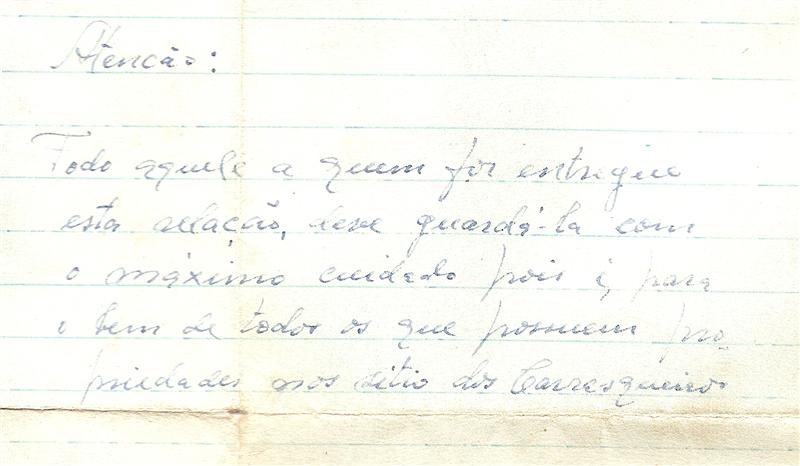 Atenção:
Todo aquele a quem for entregue
esta relação, deve guardá-la com
o máximo cuidado pois é, para
o bem de todos os que possuem pro
priedades nos sítio dos Carrasqueiros